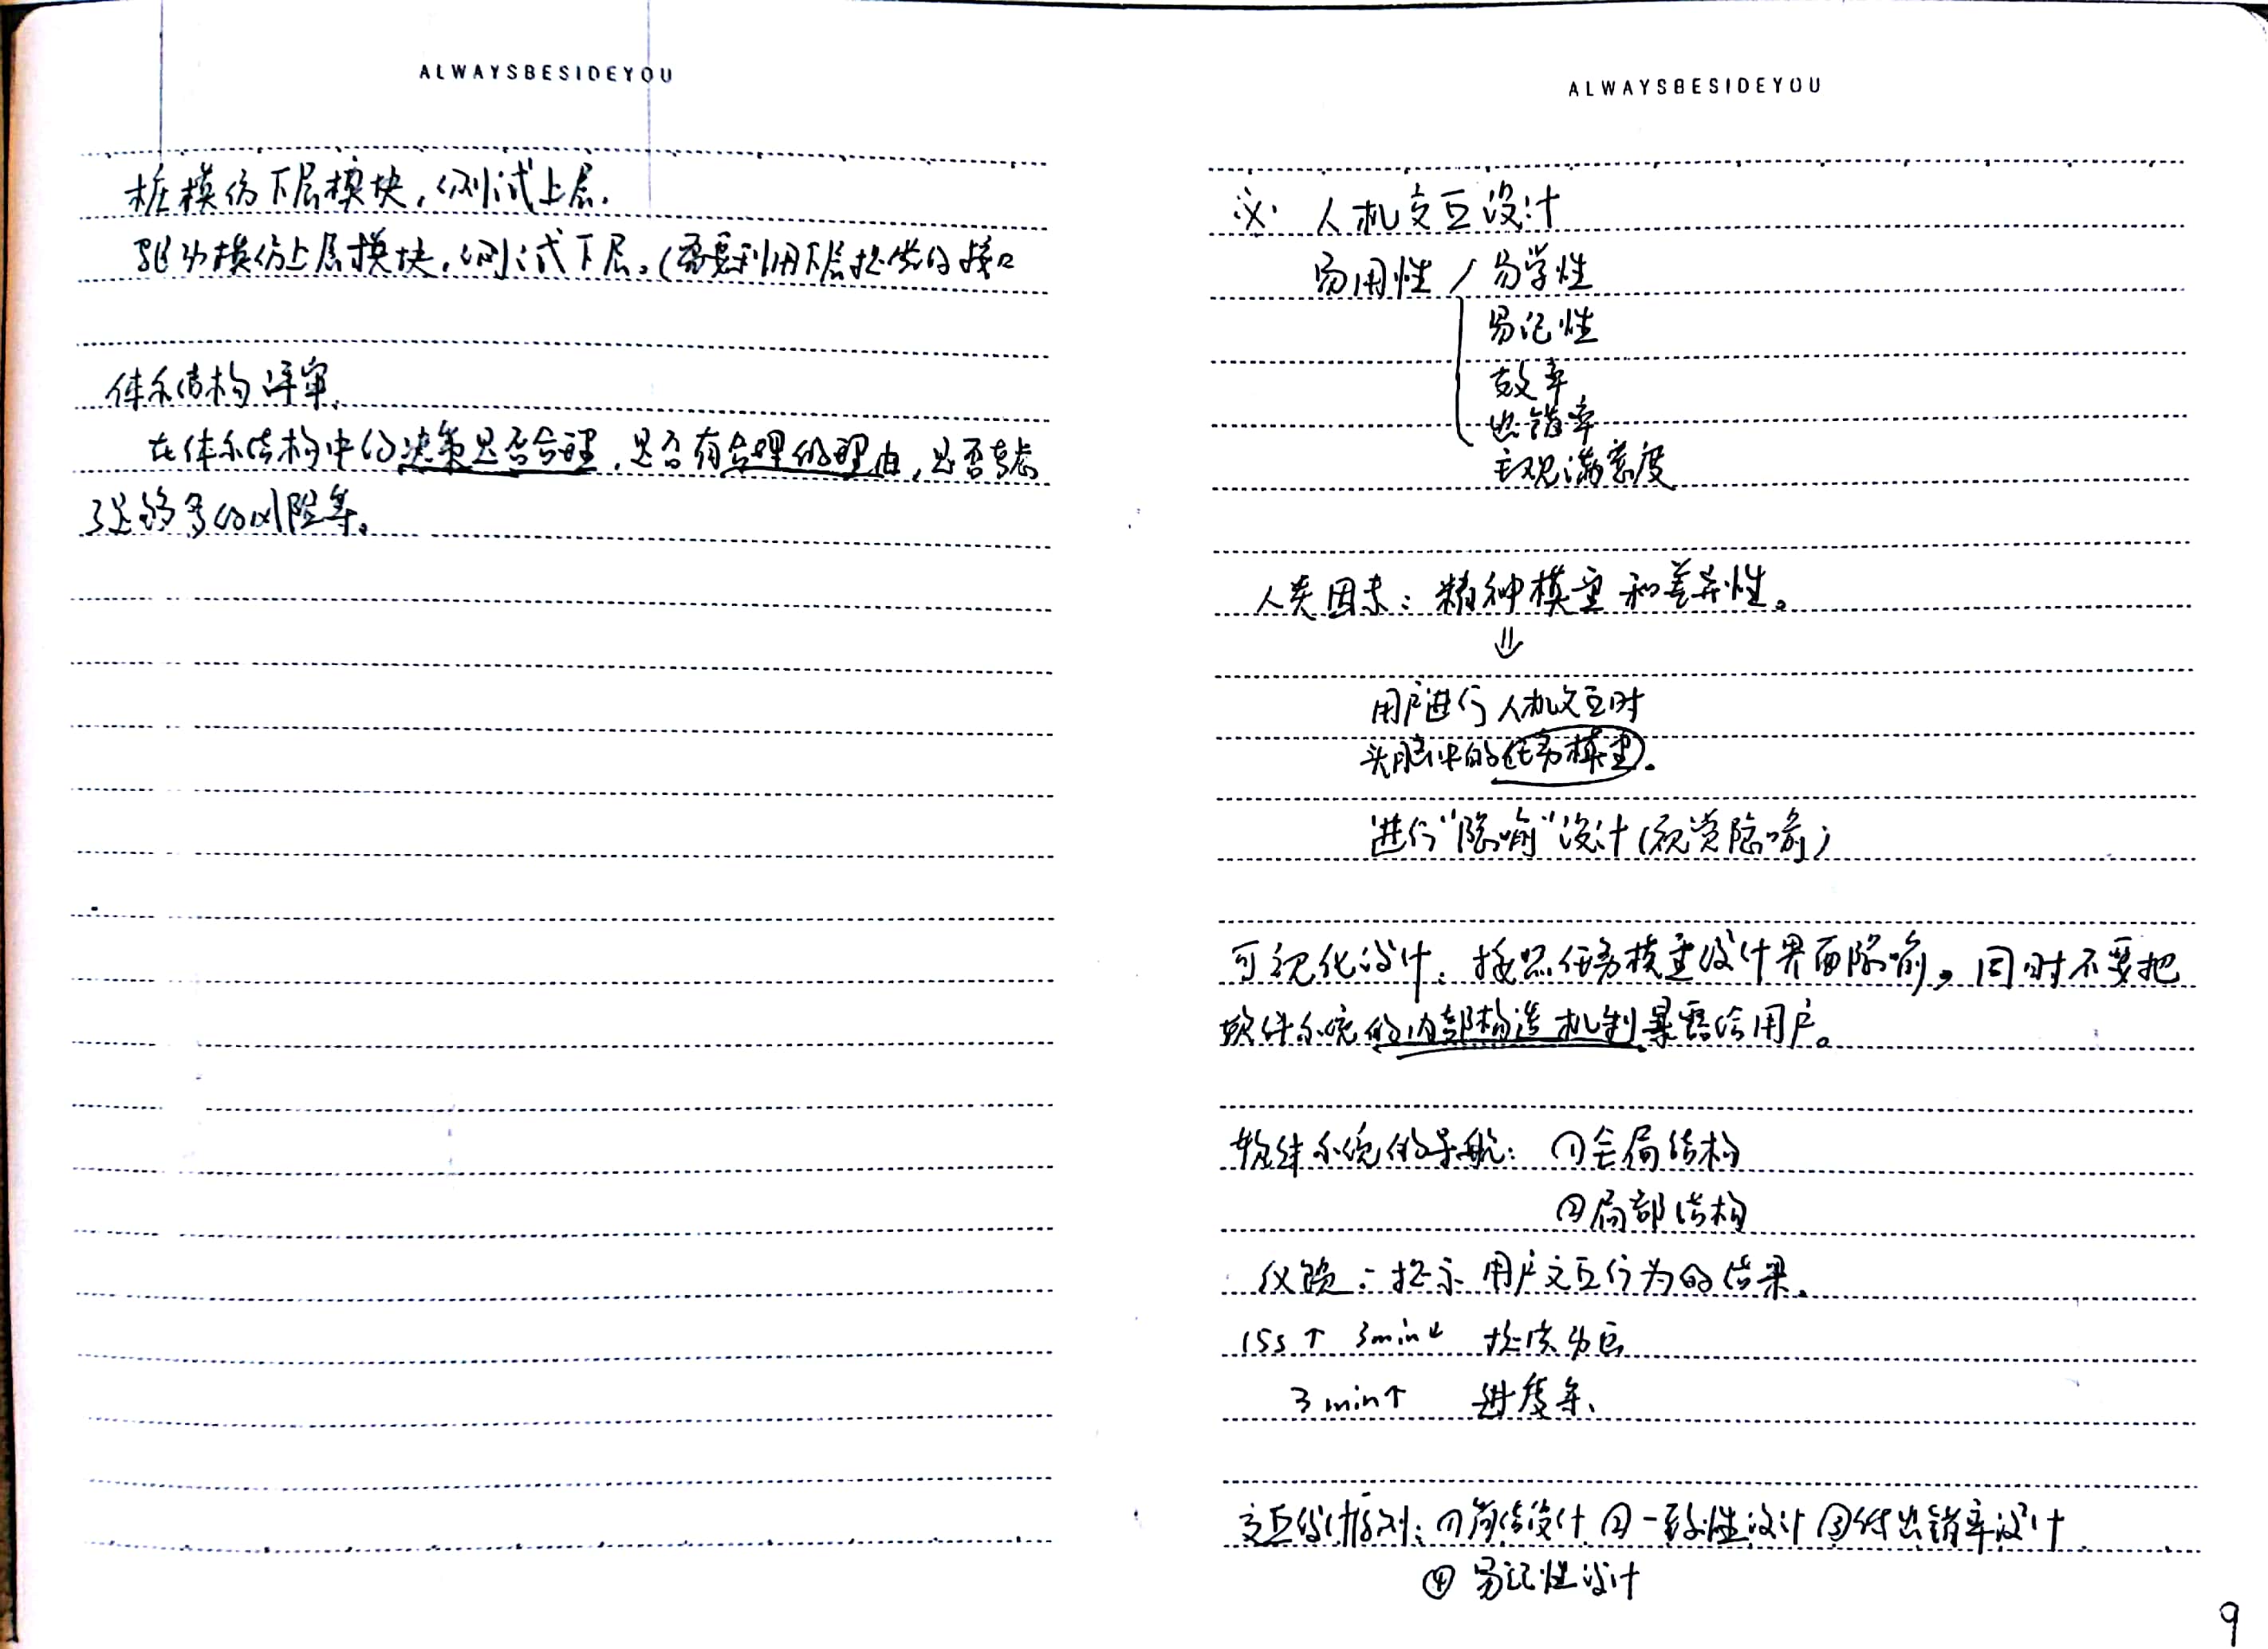 ALWAYSBESIDEYOU
桩模仿下层模块,测试上层.
驱动模仿上层模块,测试下层。(需要利用下层提供的接口
体系结构评审.
在体系结构中的决策是否合理,是否有合理的理由,是否考虑
了足够多的风险等。
ALWAYSBESIDEYOU
人机交互设计
易用性 易学性
易记性
效率
出错率
主观满意度
人类因素:精神模型和差异性。
⇓
用户进行人机交互时
头脑中的任务模型.
进行"隐喻"设计(视觉隐喻)
可视化设计:按照任务模型设计界面隐喻,同时不要把
软件系统的内部构造机制暴露给用户。
软件系统的导航:①全局结构
②局部结构
反馈:提示用户交互行为的结果.
15s↑ 3min↓
3min↑ 进度条.
交互设计原则:①简洁设计 ②一致性设计 ③低出错率设计
④易记性设计
9